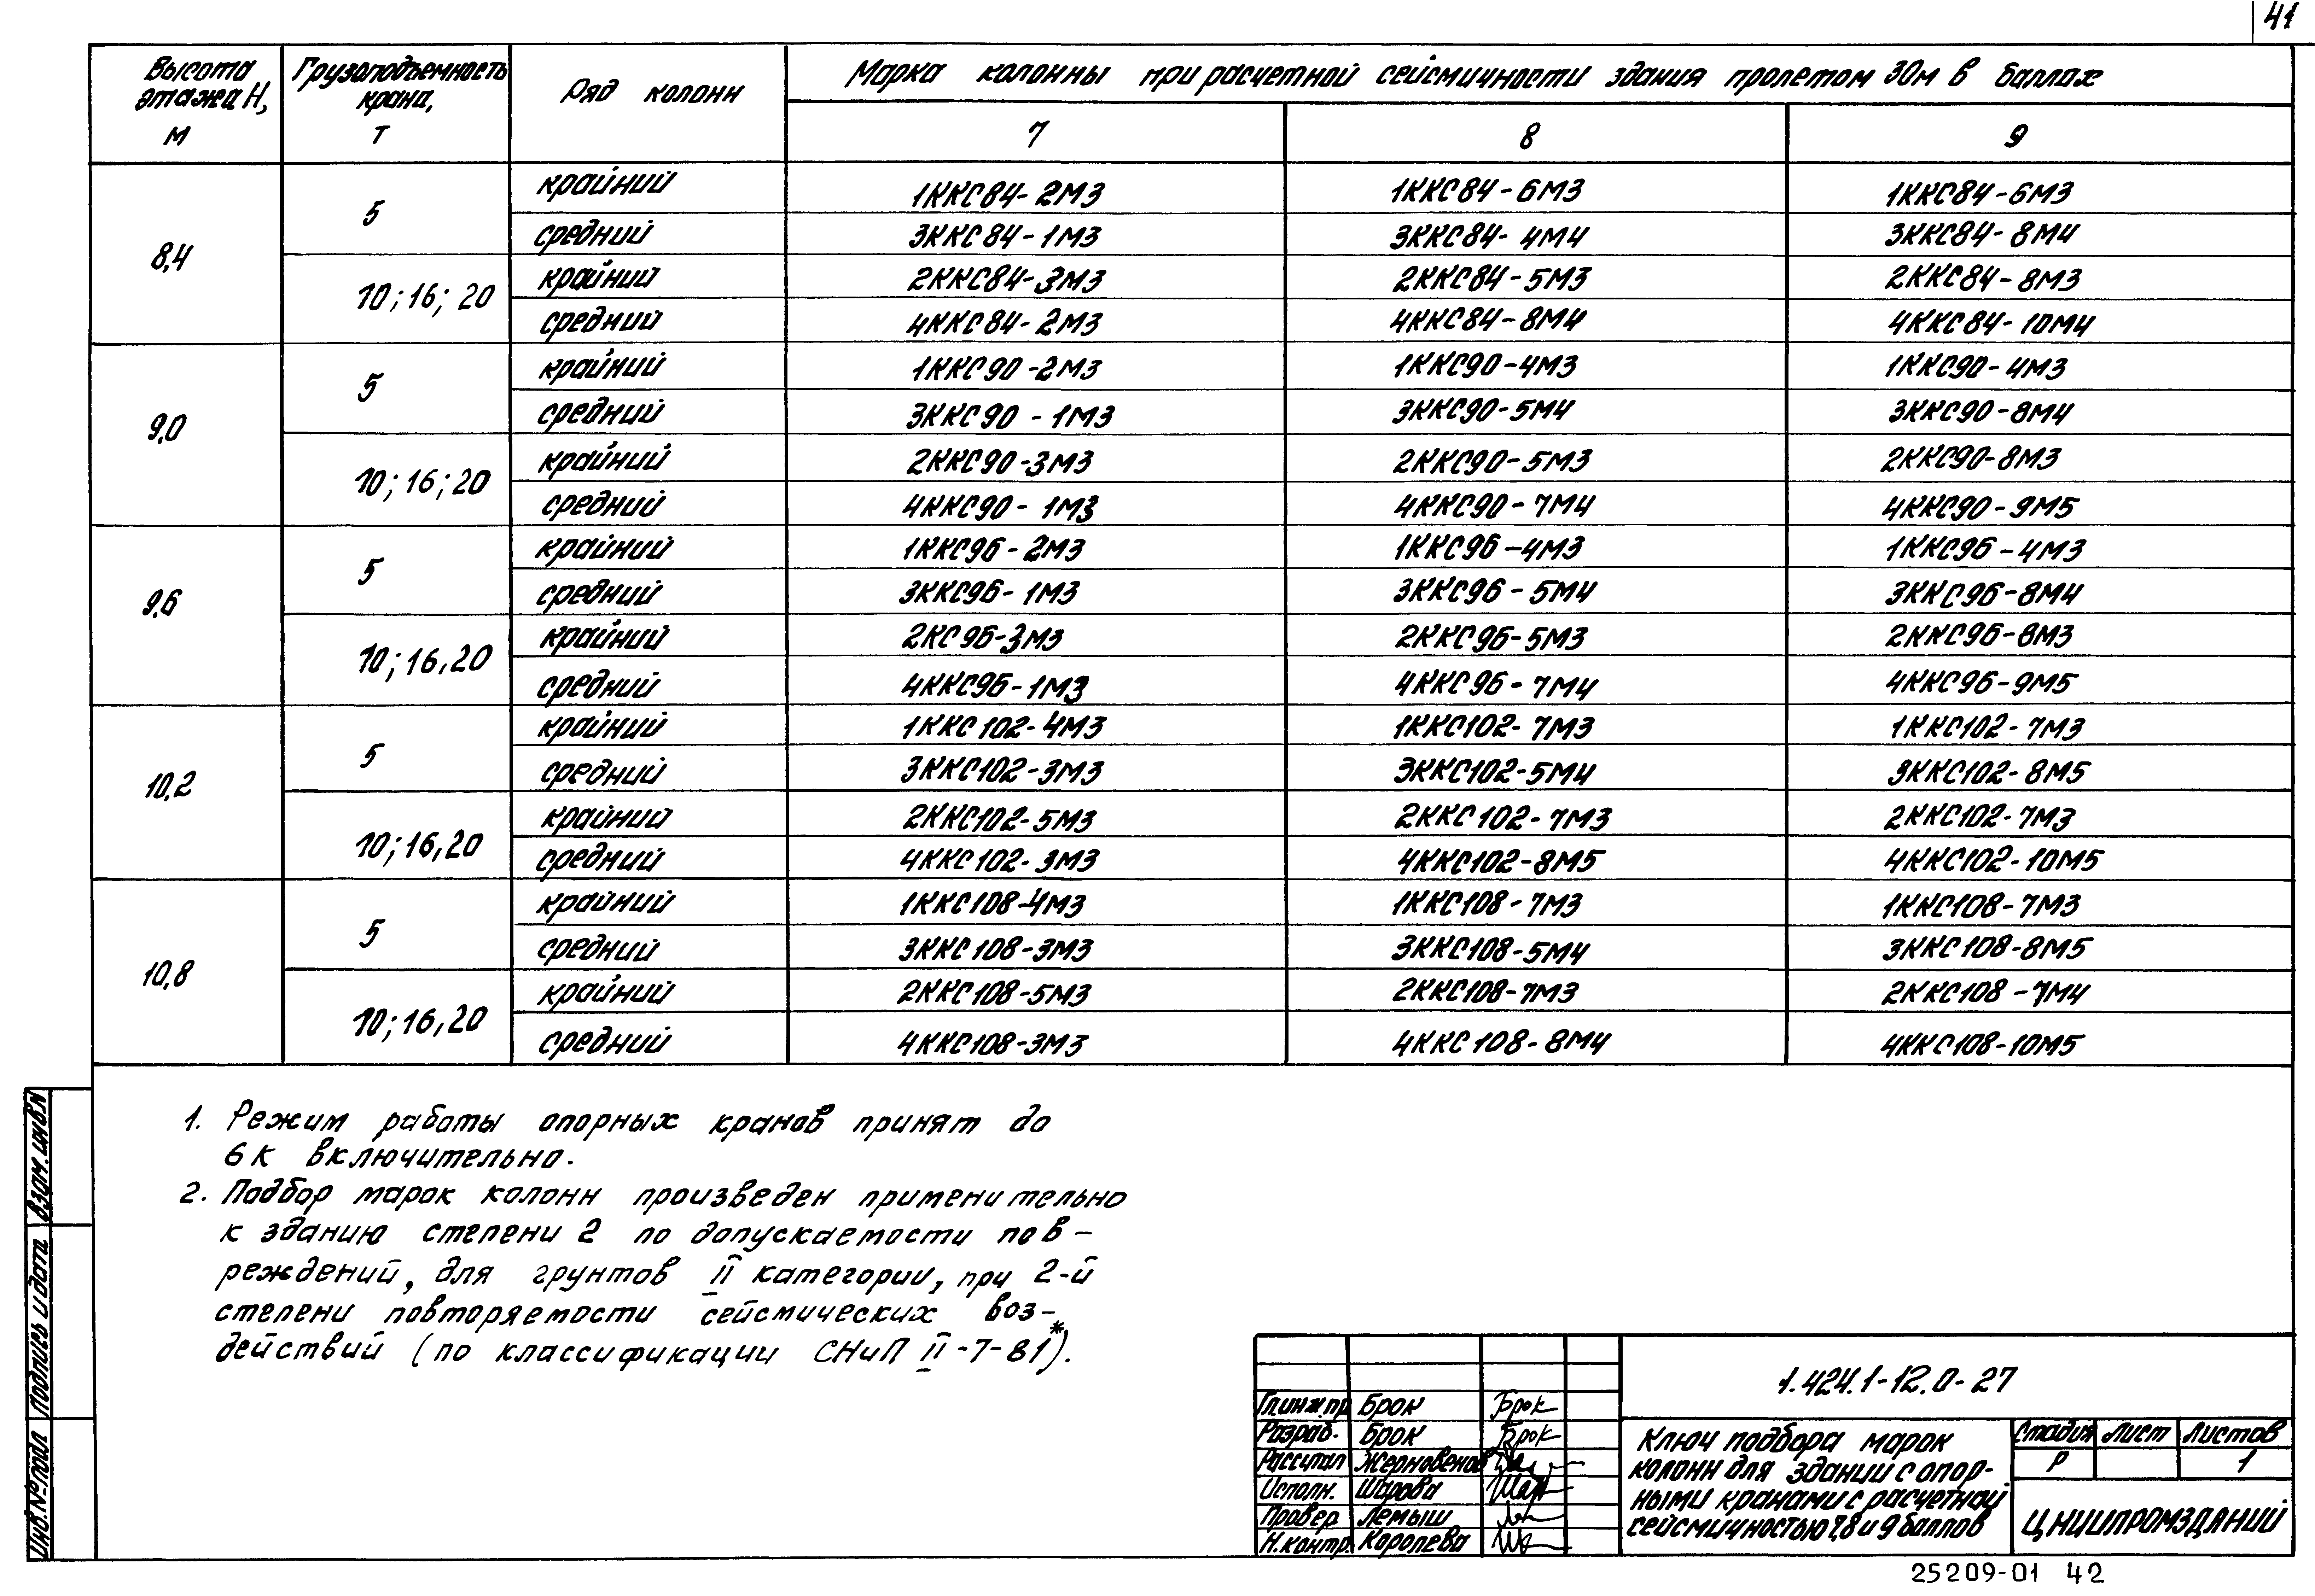 41
Высота этажа Н, м | Грузоподъемность крана, т | Ряд колонн | Марка колонны при расчетной сейсмичности здания пролетом 30м в баллах
7 | 8 | 9
8,4 | 5 | крайний | 1ККС84-2М3 | 1ККС84-6М3 | 1ККС84-6М3
средний | 3ККС84-1М3 | 3ККС84-4М4 | 3ККС84-8М4
10;16;20 | крайний | 2ККС84-3М3 | 2ККС84-5М3 | 2ККС84-8М3
средний | 4ККС84-2М3 | 4ККС84-8М4 | 4ККС84-10М4
9,0 | 5 | крайний | 1ККС90-2М3 | 1ККС90-4М3 | 1ККС90-4М3
средний | 3ККС90-1М3 | 3ККС90-5М4 | 3ККС90-8М4
10;16;20 | крайний | 2ККС90-3М3 | 2ККС90-5М3 | 2ККС90-8М3
средний | 4ККС90-1М3 | 4ККС90-7М4 | 4ККС90-9М5
9,6 | 5 | крайний | 1ККС96-2М3 | 1ККС96-4М3 | 1ККС96-4М3
средний | 3ККС96-1М3 | 3ККС96-5М4 | 3ККС96-8М4
10;16,20 | крайний | 2КС96-3М3 | 2ККС96-5М3 | 2ККС96-8М3
средний | 4ККС96-1М3 | 4ККС96-7М4 | 4ККС96-9М5
10,2 | 5 | крайний | 1ККС102-4М3 | 1ККС102-7М3 | 1ККС102-7М3
средний | 3ККС102-3М3 | 3ККС102-5М4 | 3ККС102-8М5
10;16,20 | крайний | 2ККС102-5М3 | 2ККС102-7М3 | 2ККС102-7М3
средний | 4ККС102-3М3 | 4ККС102-8М5 | 4ККС102-10М5
10,8 | 5 | крайний | 1ККС108-4М3 | 1ККС108-7М3 | 1ККС108-7М3
средний | 3ККС108-3М3 | 3ККС108-5М4 | 3ККС108-8М5
10;16,20 | крайний | 2ККС108-5М3 | 2ККС108-7М3 | 2ККС108-7М4
средний | 4ККС108-3М3 | 4ККС108-8М4 | 4ККС108-10М5
1. Режим работы опорных кранов принят до
6К включительно.
2. Подбор марок колонн произведен применительно
к зданию степени 2 по допускаемости пов-
реждений, для грунтов II категории, при 2-й
степени повторяемости сейсмических воз-
действий (по классификации СНиП II-7-81*).
Взам.инв.№
Подпись и дата
Инв.№подл
Гл.инж.пр. Брок Брок
Разраб. Брок Брок
Рассчитал Жерновенков
Исполн. Шарова
Провер. Лемыш
Н.контр. Королева
1.424.1-12.0-27
Ключ подбора марок
колонн для зданий с опор-
ными кранами с расчетной
сейсмичностью 7,8 и 9 баллов
Стадия Лист Листов
Р 1
ЦНИИПРОМЗДАНИЙ
25209-01 42